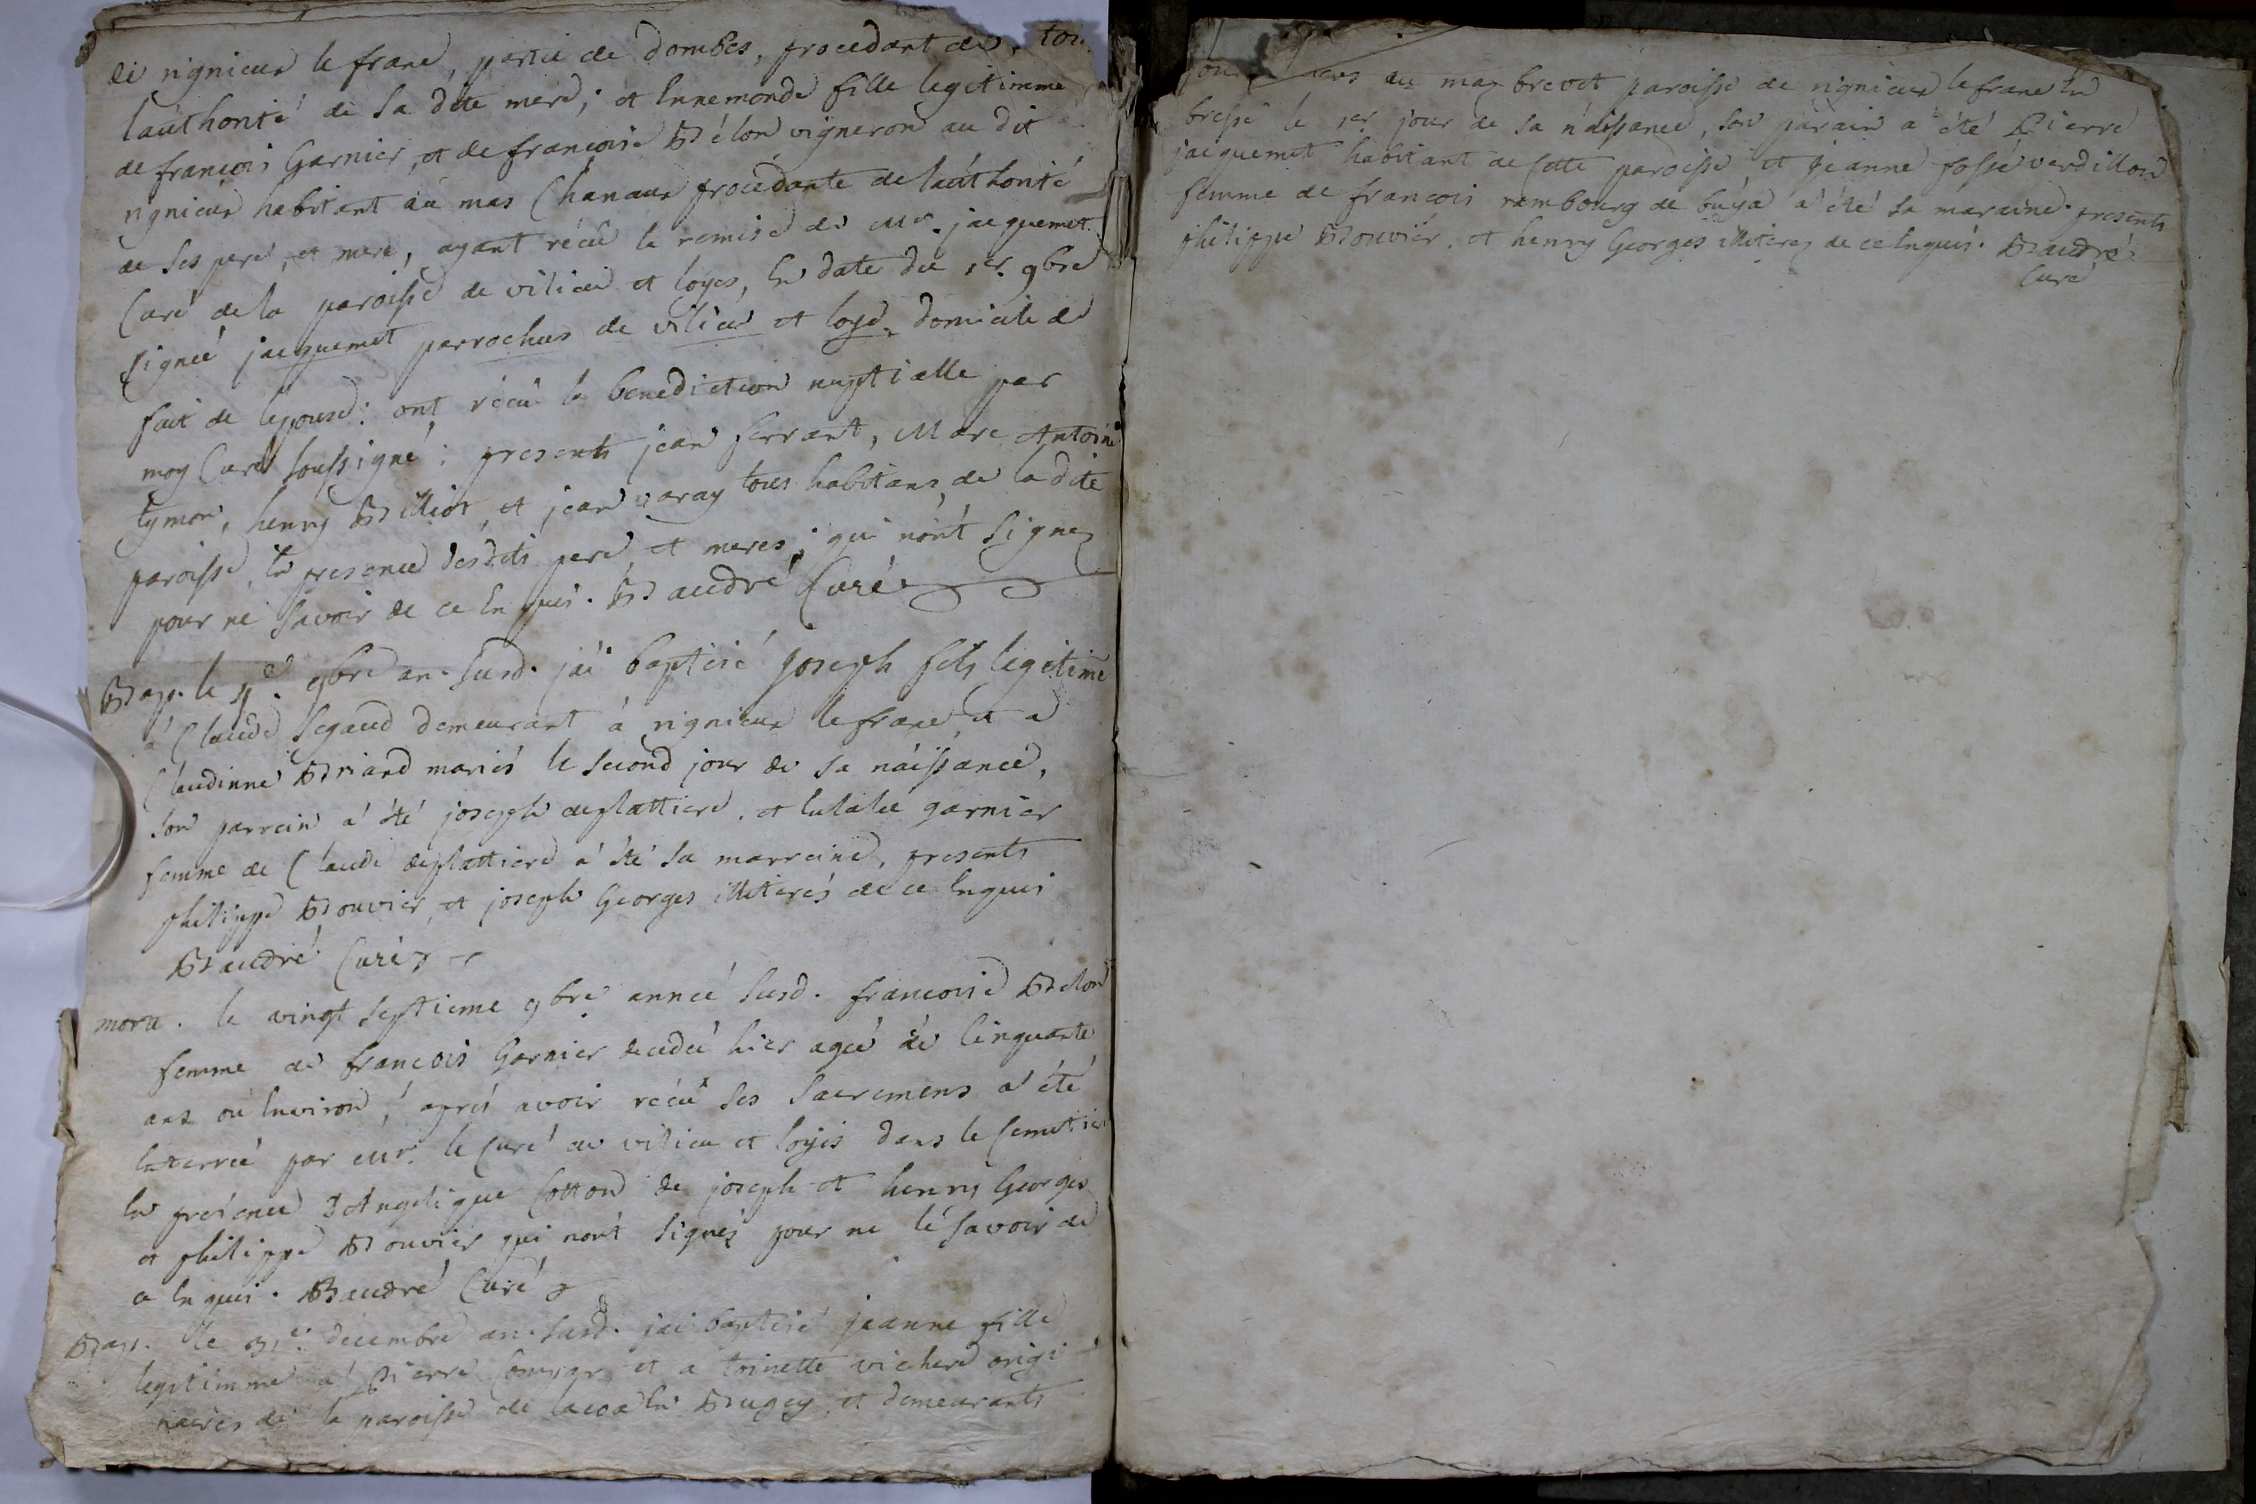 de rignieux le franc, partie de dombes, procedant de
l'authorité de sa dite mere; et Ennemonde fille legitimme
de francois Garnier, et de francoise Bélon vigneron au dit
rignieux habitant au mas Chanaux procedante de l'authorité
de ses pere, et mere, ayant récu la remise de Mr. jacquemet
Curé de la paroisse de vilieu et loyes, En date du 1er. 9bre
signée jacquemet parrochus de vilieu et loye, domicile de
fait de lepouse: ont récu la benediction nuptialle par
moy Curé soussigné; presents jean ferrant, Marc Antoine
tymon, henry Billiot, et jean varay tous habitans de la dite
paroisse, En presence desdits pere et meres; qui n'ont signez
pour ne savoir de ce Enquis. Baudré Curé
Bap. le 9bre an. susd. jai baptisé joseph fils legitime
à Claude segaud demeurant à rignieux le franc et a
Claudinne Briand mariés le second jour de sa náissance,
son parrein à été joseph deplattiere, et Eulalie garnier
femme de Claude deplattiere a été sa marreine, presents
philippe Bouvier, et joseph Georges illiterés de ce Enquis
Baudré Curé
mortu. le vingt septieme 9bre année susd. francoise Belon
femme de francois Garnier decedée hier ageé de Cinquante
ans ou Environ, aprés avoir récu ses sacremens a été
Enterrée par Mr. le Curé de vilieu et loyes dans le Cemetier
En présence d'Angelique Cotton de joseph et henry Georges
et philippe Bouvier qui nont signéz pour ne le savoir de
ce Enquis. Baudré Curé
Bap. le decembre an. susd. jai baptisé jeanne fille
legitimme a Pierre et a toinette vichere origi
naires de la paroisse de En Bugey, et demeurants
au mas brevet paroisse de rignieux le franc En
bresse le 1er jour de sa náissance, son párain a été Pierre
jacquemet habitant de Cette paroisse et jeanne fossé verdillon
femme de francois rembourg de buya a été sa maraine. presents
philippe Bouvier, et henry Georges illiterez de ce Enquis. Baudré
Curé